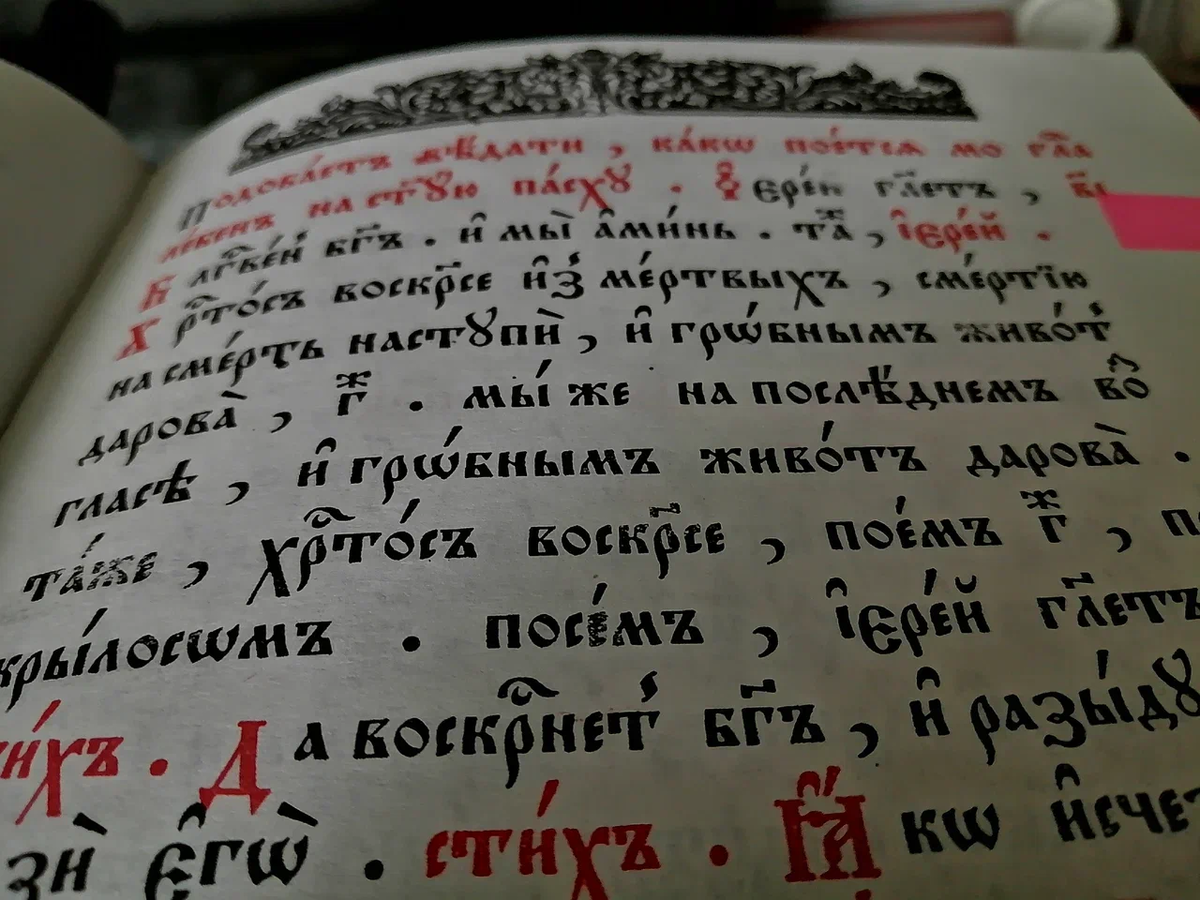 Подоба́етъ вѣ́дати , ка́кѡ пое́тсѧ мо гл҃а
ле́бенъ на ст҃ꙋ́ю па́схꙋ . Їере́и гл҃етъ ,
Б лг҃ве́нъ бг҃ъ . и҆ мы̀ а҆ми́нь . та́ж , і҆ере́й .
Х рⷭ҇то́съ воскр҃се и҆з̾ ме́ртвыхъ , сме́ртїю
на сме́рть настꙋпѝ , и҆ грѡ́бнымъ живо́т̾
дарова̀ , г҃ⷤ . мы́ же на послѣ́днемъ во́з
гласѣ , и҆ грѡ́бнымъ живо́тъ дарова̀ .
та́же , хрⷭ҇то́съ воскр҃се , пое́мъ г҃ⷤ , п
кры́лосѡмъ . посе́мъ , і҆ере́й гл҃етъ
и́хъ . Да воскрⷭ҇нет̾ бг҃ъ , и҆ разы́дꙋ
зѝ є҆гѡ̀ . сти́хъ . Ꙗ҆́кѡ и҆счe